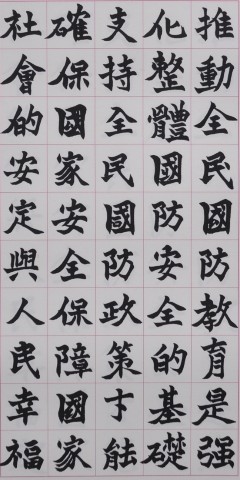 推動全民國防教育是强
化整體國防安全的基礎
支持全民國防政策才能
確保國家安全保障國家
社會的安定與人民幸福